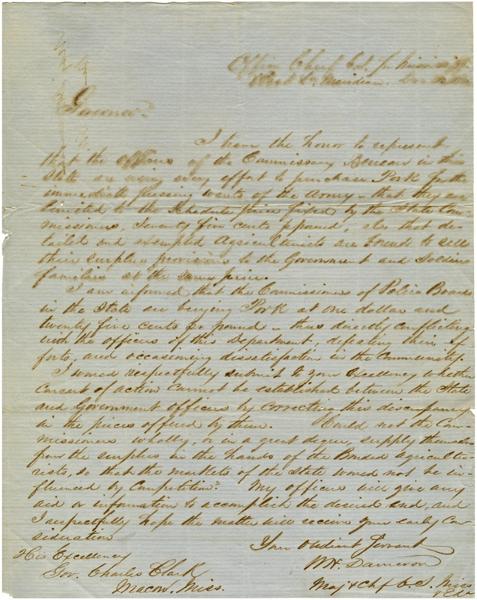 Office Chief C.S. for Mississippi
Meridian
Governor
I have the honor to represent
that the officers of the Commissary Bureau in this
State are using every effort to purchase Pork for the
immediate pressing wants of the Army - that they are
limited to the Schedule price fixed by the State Com-
missioners, Seventy five cents p pound, also that de-
tailed and exempted Agriculturists are bound to sell
their surplus provisions to the Government and Soldiers
families at the same price.
I am informed that the Commissioners of Police Boards
in the State are buying Pork at one dollar and
twenty five cents per pound - thus directly conflicting
with the officers of this Department, defeating their ef-
forts, and occasioning dissatisfaction in the Community.
I would respectfully submit to your Excellency whether
concert of action cannot be established between the State
and Government Officers by correcting this discrepancy
in the prices offered by them. Could not the Com-
missioners wholly, or in a great degree, supply themselves
from the surplus in the hands of the Bonded Agricultu-
rists, so that the markets of the State would not be in-
fluenced by Competition? My officers will give any
aid or information to accomplish the desired end, and
I respectfully hope the matter will receive your early con-
sideration
Your Obedient Servant
W H Dameron
Maj & Chf C.S. Miss
His Excellency
Gov. Charles Clark
Macon, Miss.